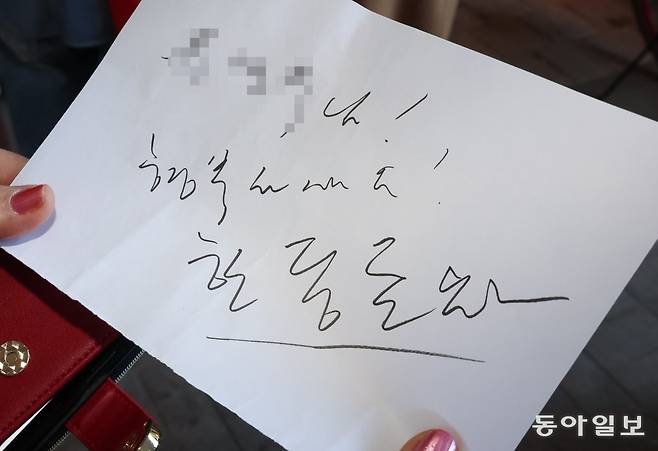 님!
행복하세요!
한동훈
동아일보